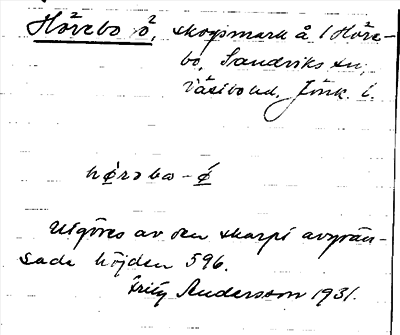 Hörebo ö, skogsmark å 1 Höre-
bo, Sandviks sn,
Västbo hd, Jönk. l.
hørəbo-ǿ
Utgöres av den skarpt avgrän-
sade höjden 596.
Fritz Andersson 1931.